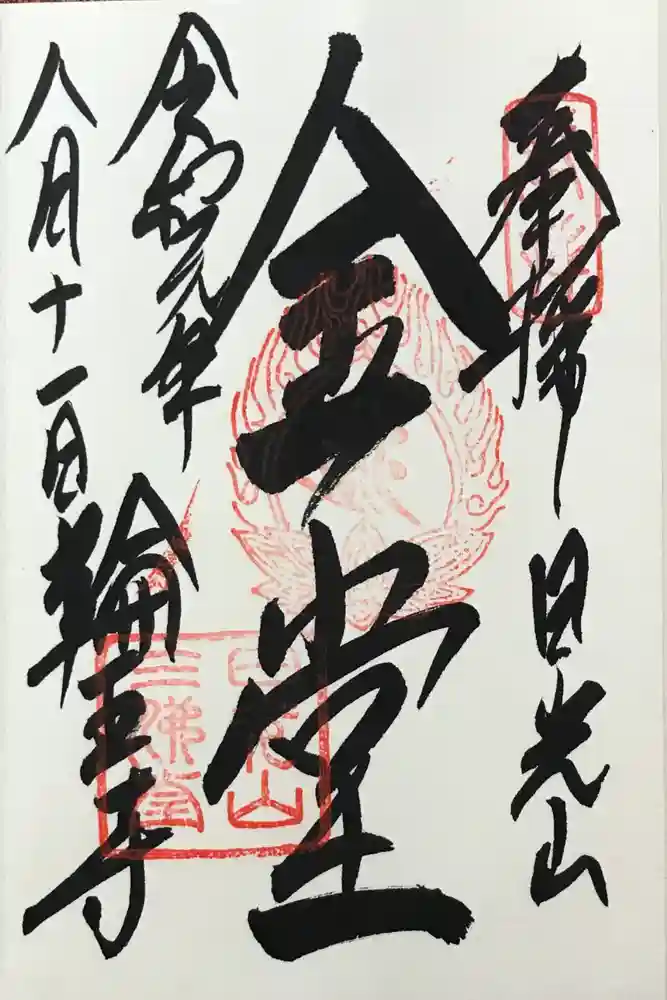 奉拝 日光山
金堂
令和元年
八月十一日 輪王寺
日光山
三佛堂